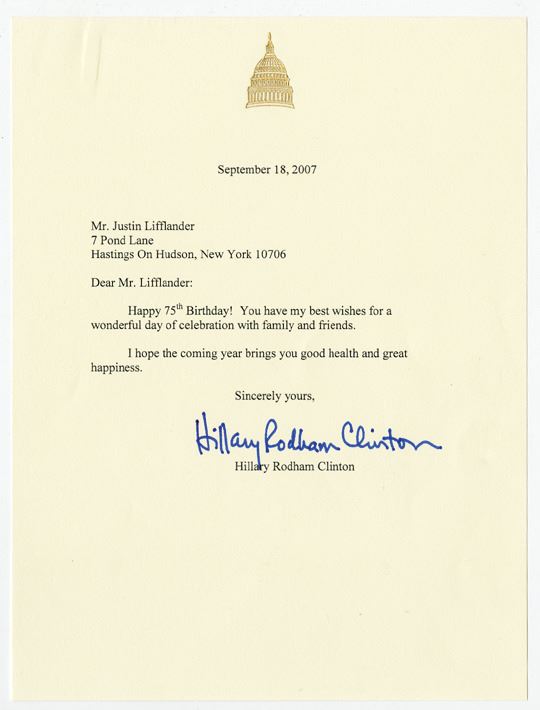 September 18, 2007
Mr. Justin Lifflander
7 Pond Lane
Hastings On Hudson, New York 10706
Dear Mr. Lifflander:
Happy 75th Birthday! You have my best wishes for a
wonderful day of celebration with family and friends.
I hope the coming year brings you good health and great
happiness.
Sincerely yours,
Hillary Rodham Clinton
Hillary Rodham Clinton